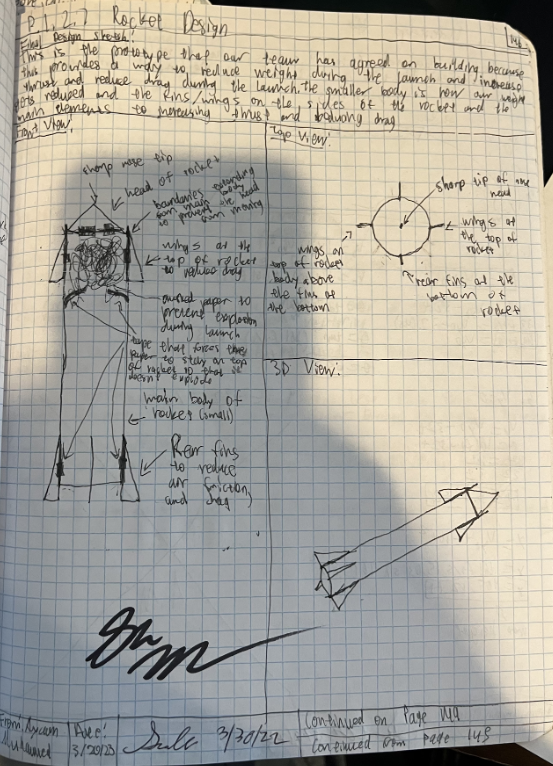 P 1.2.7 Rocket Design
146
Final Design sketch:
This is the prototype that our team has agreed on building because
this provides a way to reduce weight during the launch and increase
thrust and reduce drag during the launch. the smaller body is how our weight
gets reduced and the fins/wings on the sides of the rocket and the
main elements to increasing thrust and reducing drag
Front View:
sharp nose tip
head of rocket
boundaries extending
from main body
to prevent the head
from moving
wings at the
top of rocket
to reduce drag
paper to
prevent explosion
during launch
tape that forces the
paper to stay on top
of rocket so that it
doesn't explode
main body of
rocket (small)
Rear fins
to reduce
air friction
and drag
Top View:
sharp tip of
head
wings at
the top of
rocket
wings on
top of rocket
body above
the fins at
the bottom
rear fins at the
bottom of
rocket
3D View:
From:
Date:
3/30/22
Continued on Page 144
Continued from page 145